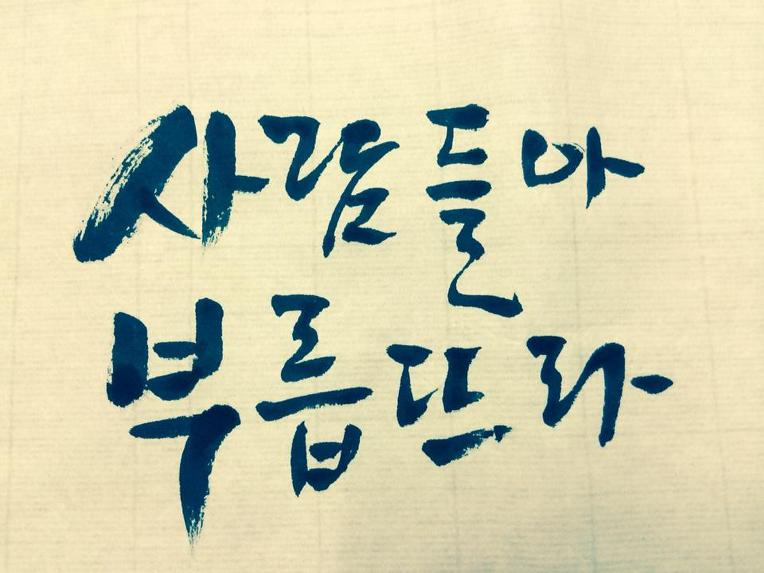 사람들아
부릅뜨라